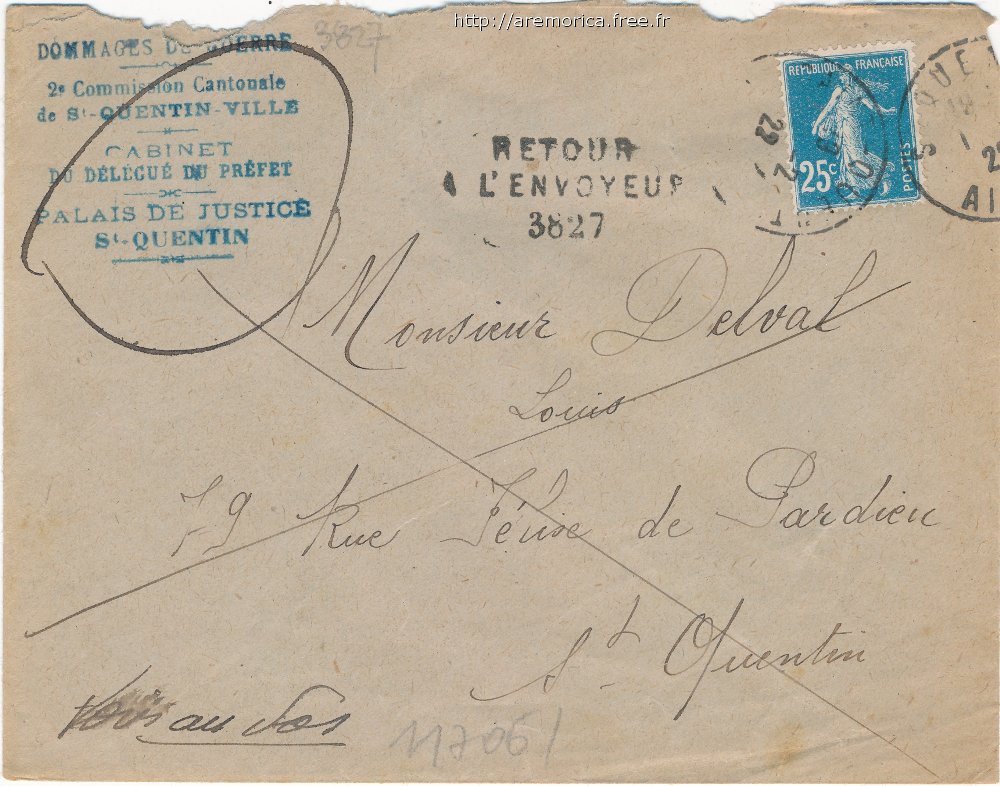 http://aremorica.free.fr
3827
DOMMAGES DE GUERRE
2e Commission Cantonale
de St-QUENTIN-VILLE
CABINET
DU DÉLÉGUÉ DU PRÉFET
PALAIS DE JUSTICE
St-QUENTIN
RETOUR
A L'ENVOYEUR
3827
REPUBLIQUE FRANÇAISE
25c
POSTES
Monsieur Delval
Louis
79 Rue de Pardieu
St Quentin
au dos
117061